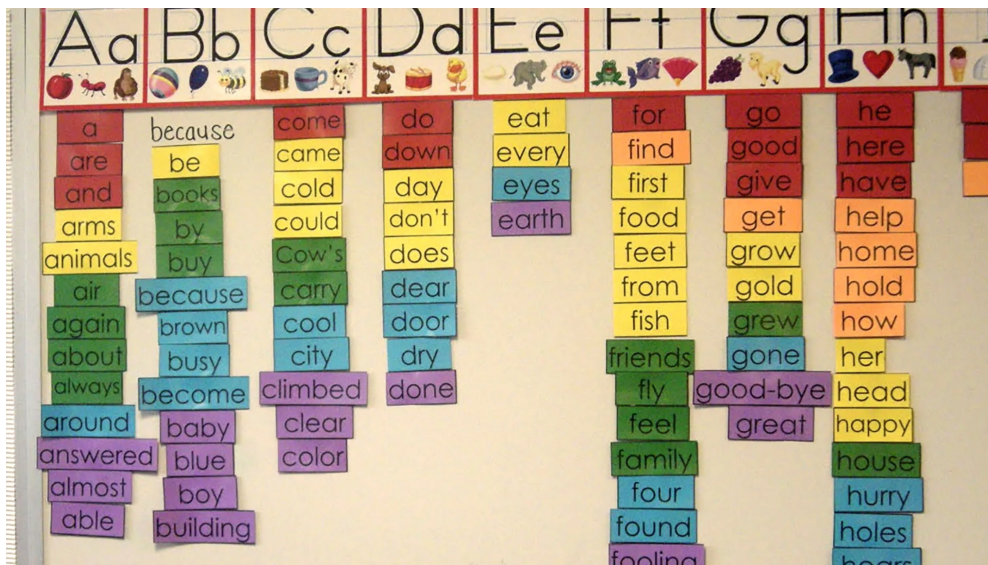 Aa
a
are
and
arms
animals
air
again
about
always
around
answered
almost
able
Bb
because
be
books
by
buy
because
brown
busy
become
baby
blue
boy
building
Cc
come
came
cold
could
Cow's
carry
cool
city
climbed
clear
color
Dd
do
down
day
don't
does
dear
door
dry
done
Ee
eat
every
eyes
earth
Ff
for
find
first
food
feet
from
fish
friends
fly
feel
family
four
found
fooling
Gg
go
good
give
get
grow
gold
grew
gone
good-bye
great
Hh
he
here
have
help
home
hold
how
her
head
happy
house
hurry
holes